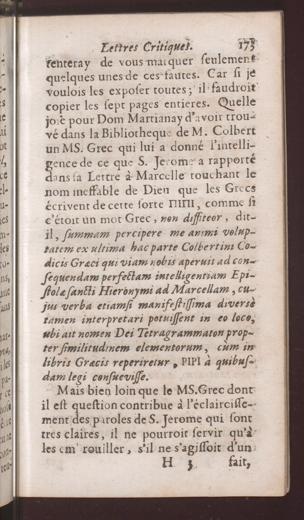 Lettres Critiques. 173
tenteray de vous marquer seulement
quelques unes de ces fautes. Car si je
voulois les exposer toutes; il faudroit
copier les sept pages entieres. Quelle
joie pour Dom Martianay d'avoir trou-
vé dans la Bibliotheque de M. Colbert
un MS. Grec qui lui a donné l'intelli-
gence de ce que S. Jerome a rapporté
dans sa Lettre à Marcelle touchant le
nom ineffable de Dieu que les Grecs
écrivent de cette sorte ΠΙΠΙ, comme si
c'étoit un mot Grec, non diffiteor, dit-
il, summam percipere me animi volup-
tatem ex ultima hac parte Colbertini Co-
dicis Græci qui viam nobis aperuit ad con-
sequendam perfectam intelligentiam Epi-
stolæ sancti Hieronymi ad Marcellam, cu-
jus verba etiamsi manifestissima diversè
tamen interpretari potuissent in eo loco,
ubi ait nomen Dei Tetragrammaton prop-
ter similitudinem elementorum, cùm in
libris Græcis reperiretur, PIPI à quibus-
dam legi consuevisse.
Mais bien loin que le MS. Grec dont
il est question contribue à l'éclaircisse-
ment des paroles de S. Jerome qui sont
tres claires, il ne pourroit servir qu'à
les em rouiller, s'il ne s'agissoit d'un
H 3 fait,